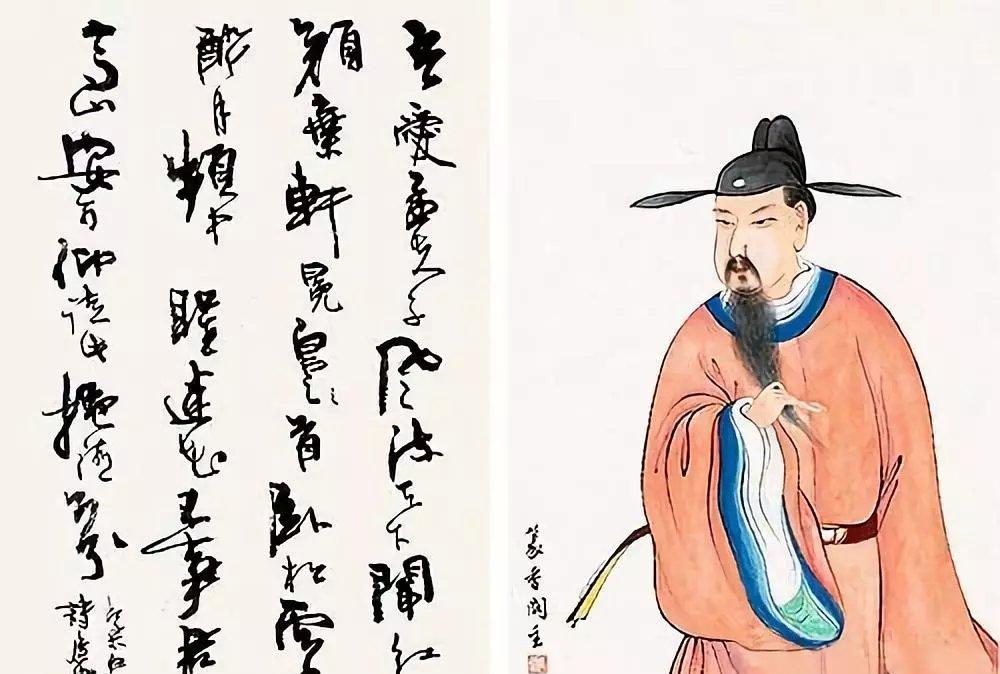 吾愛孟夫子風流天下聞紅
顏棄軒冕白首臥松雲
醉月頻中聖迷花不事君
高山安可仰徒此揖清芬
詩
篆香閣主